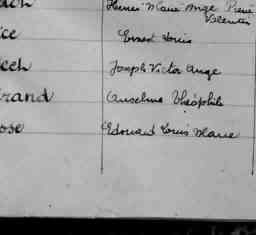 Marie Ange Pierre
Valentin
ice Ernest Louis
Joseph Victor Ange
rand Anselme Théophile
ose Edouard Louis Marie